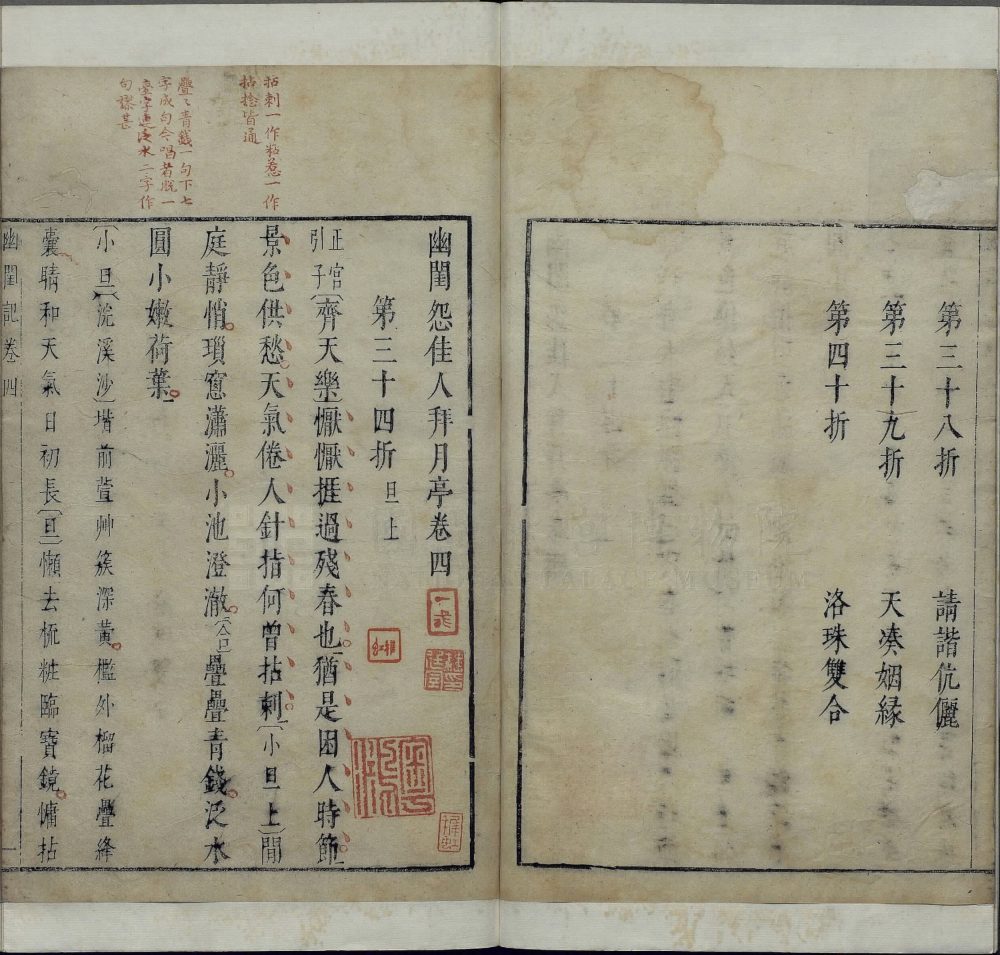 第三十八折 請諧伉儷
第三十九折 天湊姻緣
第四十折 洛珠雙合
拈刺一作粘惹一作
拈捻皆通
疊〻青錢一句下七
字成句今唱者既一
句謬甚
幽閨怨佳人拜月亭卷四
第三十四折 旦上
正宮引子〔齊天樂〕懨懨捱過殘春也猶是困人時節
景色供愁天氣倦人針指何曾拈刺〔小旦上〕閒
庭靜悄瑣窗瀟灑小池澄澈〔合〕疊疊青錢泛水
圓小嫩荷葉
〔小旦〕〔浣溪沙〕堦前萱艸簇深黄檻外榴花疊絳
囊晴和天氣日初長〔旦〕懶去梳粧臨寶鏡慵拈
幽閨記卷四 一